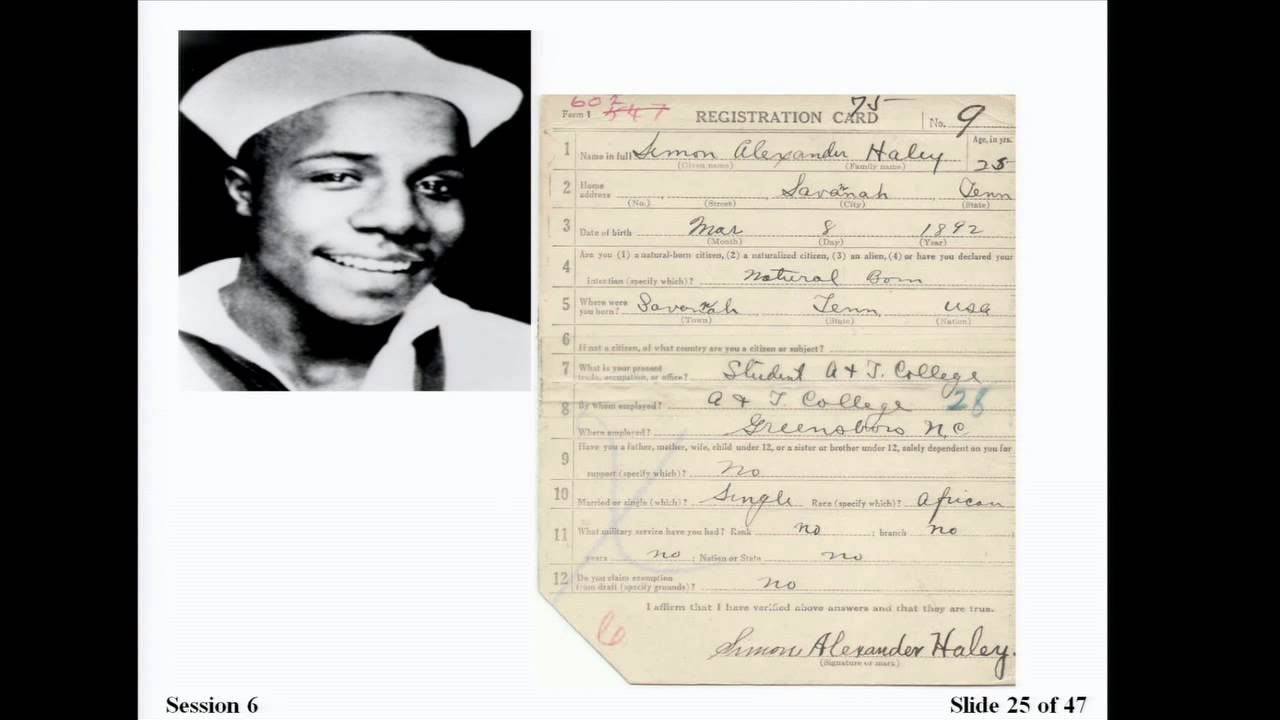 602 547
75
Form 1 REGISTRATION CARD No. 9
1 Name in full Simon Alexander Haley Age, in yrs.
(Given name) (Family name) 25
2 Home address Savanah Tenn
(No.) (Street) (City) (State)
3 Date of birth Mar 8 1892
(Month) (Day) (Year)
Are you (1) a natural-born citizen, (2) a naturalized citizen, (3) an alien, (4) or have you declared your
4 intention (specify which)? Natural Born
5 Where were you born? Savanah Tenn. USA
(Town) (State) (Nation)
6 If not a citizen, of what country are you a citizen or subject?
7 What is your present trade, occupation, or office? Student A & T. College
8 By whom employed? A & T College 28
Where employed? Greensboro N, C
9 Have you a father, mother, wife, child under 12, or a sister or brother under 12, solely dependent on you for
support (specify which)? No
10 Married or single (which)? Single Race (specify which)? African
11 What military service have you had? Rank no ; branch no ;
years no ; Nation or State no
12 Do you claim exemption from draft (specify grounds)? no
I affirm that I have verified above answers and that they are true.
6
Simon Alexander Haley.
(Signature or mark)
Session 6
Slide 25 of 47